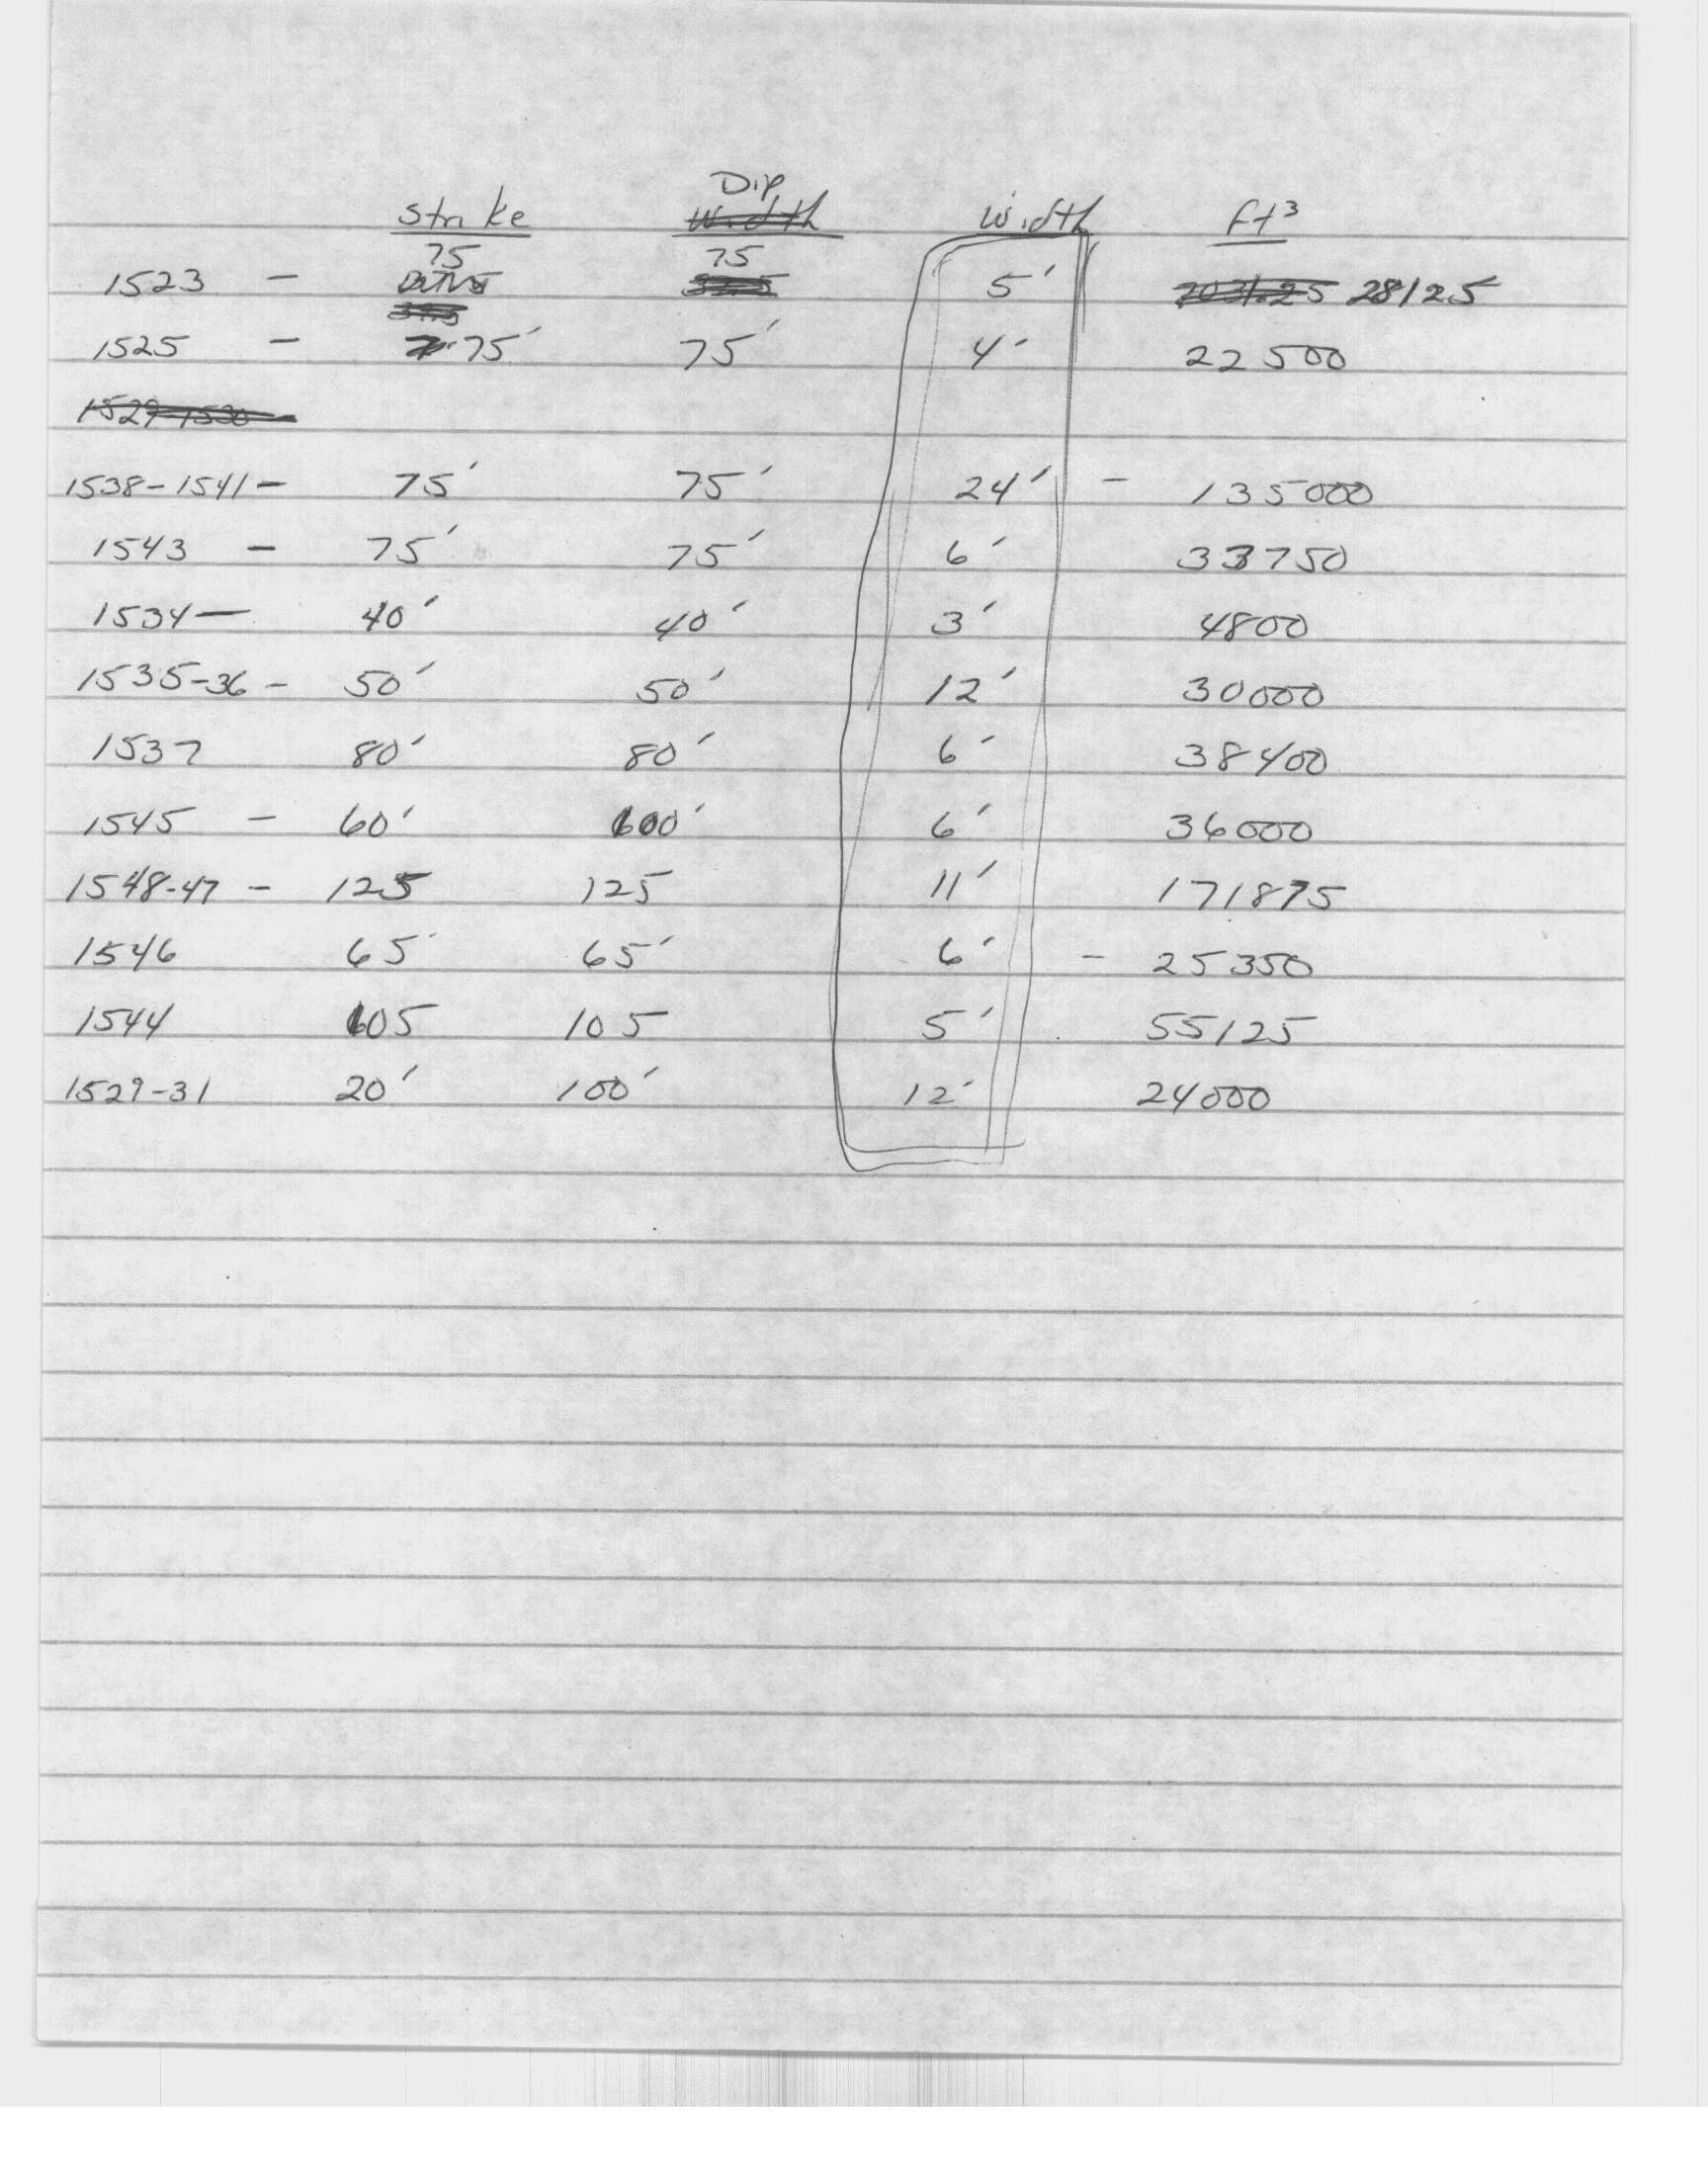 Dip
Strike Width Width ft³
75 75
1523 - 5' 7031.25 28125
1525 - 75' 75' 4' 22500
1529-1530
1538-1541- 75' 75' 24' - 135000
1543 - 75' 75' 6' 33750
1534- 40' 40' 3' 4800
1535-36 - 50' 50' 12' 30000
1537 80' 80' 6' 38400
1545 - 60' 100' 6' 36000
1548-47 - 125 125 11' 171875
1546 65' 65' 6' - 25350
1544 105 105 5' 55125
1529-31 20' 100' 12' 24000